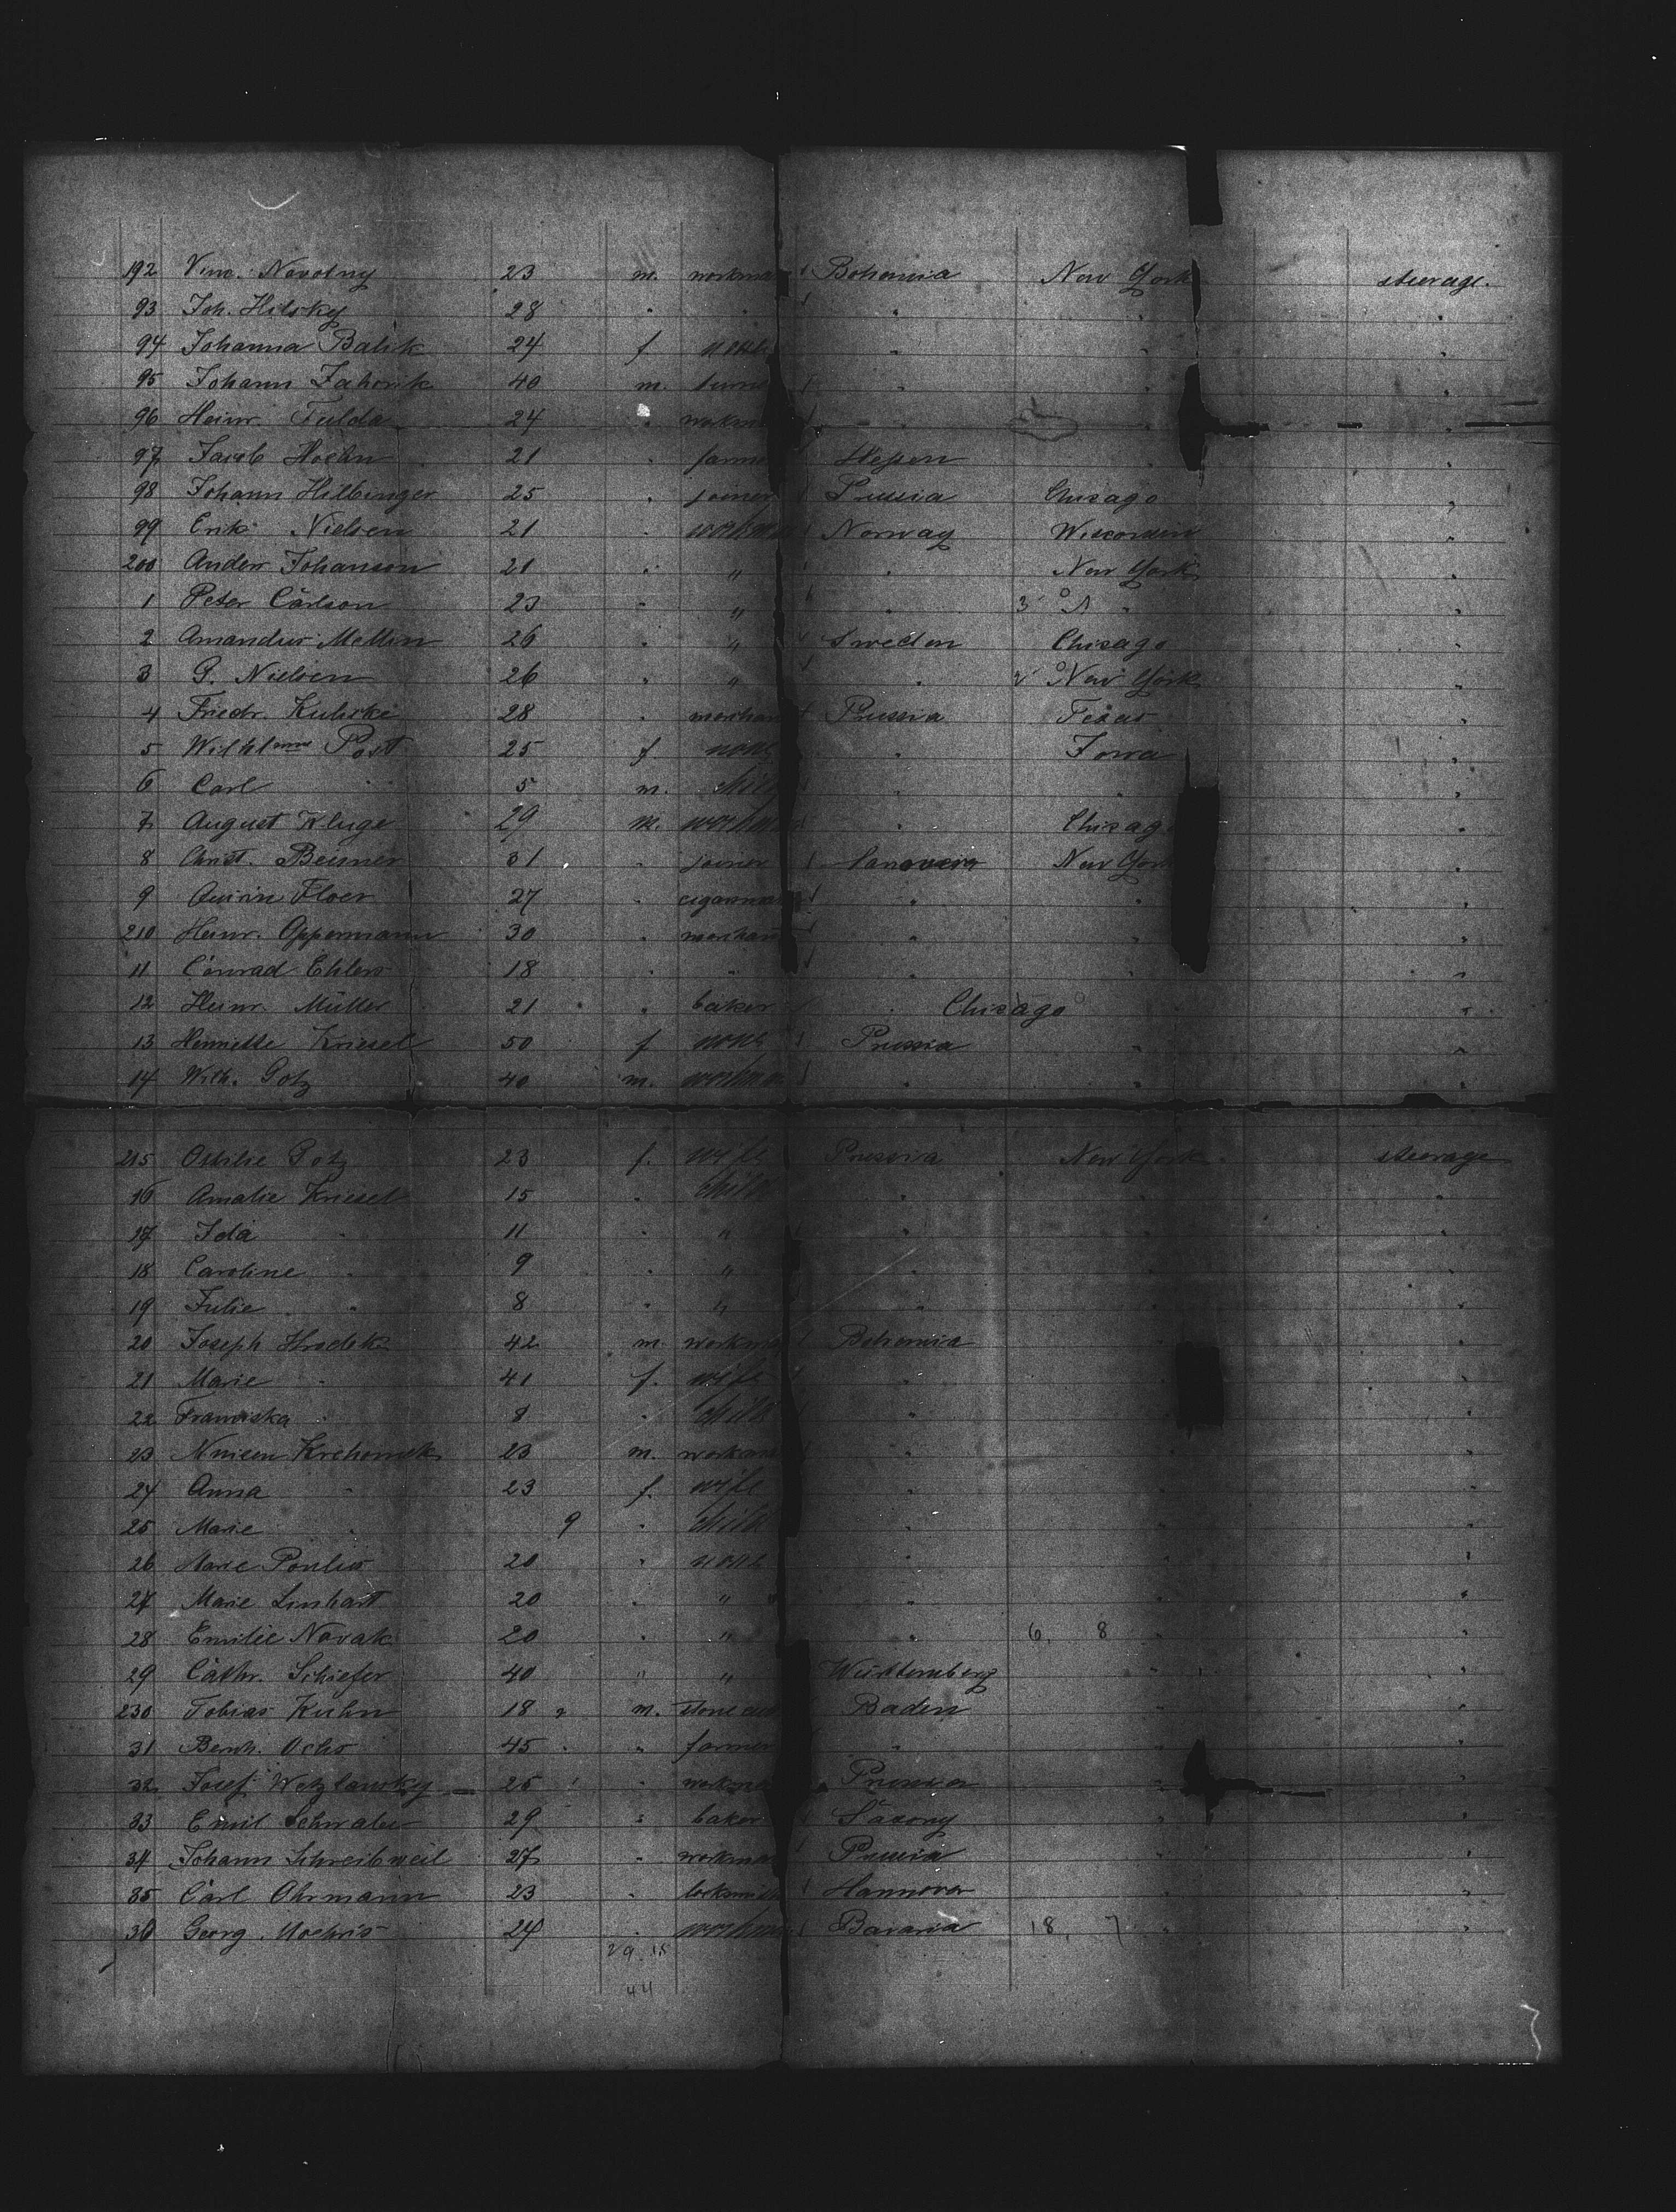 192 Vinc. Novotny 23 m. workman Bohemia New York steerage.
93 Joh. Hilsky 28 " " " " "
94 Johanna Balik 24 f. " " "
95 Johann Zahorik 40 m. " " "
96 Heinr. Fulda 24 " workm " " "
97 Jacob Hoehn 21 " farme Hessen " "
98 Johann Hilbinger 25 " joiner Prussia Chicago "
99 Erik Nielsen 21 " workman Norway Wisconsin "
200 Anders Johanson 21 " " " New York "
1 Peter Carlson 23 " " " 3 " "
2 Amandus Mellin 26 " " Sweden Chicago "
3 P. Nielsen 26 " " " 2 New York "
4 Friedr. Kuhrke 28 " merchan Prussia Texas "
5 Wilhlmine Post 25 f. none " Iowa "
6 Carl " 5 m. child " " "
7 August Kluge 29 m. workman " Chicago "
8 Christ. Beisner 31 " joiner New York "
9 Floer 27 " cigarma " " "
210 Heinr. Oppermann 30 " merchan " " "
11 Conrad Ehlers 18 " " " " "
12 Heinr. Müller 21 " baker " Chicago "
13 Henriette Kriesel 50 f none Prussia " "
14 Wilh. Gotz 40 m. workman " " "
215 Ottilie Gotz 23 f. wife Prussia New York steerage
16 Amalie Kriesel 15 " child " " "
17 Ida " 11 " " " " "
18 Caroline " 9 " " " " "
19 Julie " 8 " " " " "
20 Joseph Hradek 42 m. workma Bohemia " "
21 Marie " 41 f. wife " " "
22 Franziska " 8 " child " " "
23 23 m. workman " " "
24 Anna " 23 f. wife " " "
25 Marie " 9 " child " " "
26 Marie 20 " none " " "
27 Marie Linhart 20 " " " " "
28 Emilie Novak 20 " " " 6. 8 " "
29 Cathr. Schiefer 40 " " Württemberg " "
230 Tobias Kuhn 18 m. stone cut Baden " "
31 Bernh. Ochs 45 " farmer " " "
32 Josef Wetzlansky 25 " workma Prussia " "
33 Emil Schwabe 29 " baker Saxony " "
34 Johann Schreibweil 27 " workman Prussia " "
35 Carl Ohrmann 23 " locksmith Hannover " "
36 Georg 24 " workman Bavaria 18, 7 " "
29. 15
44